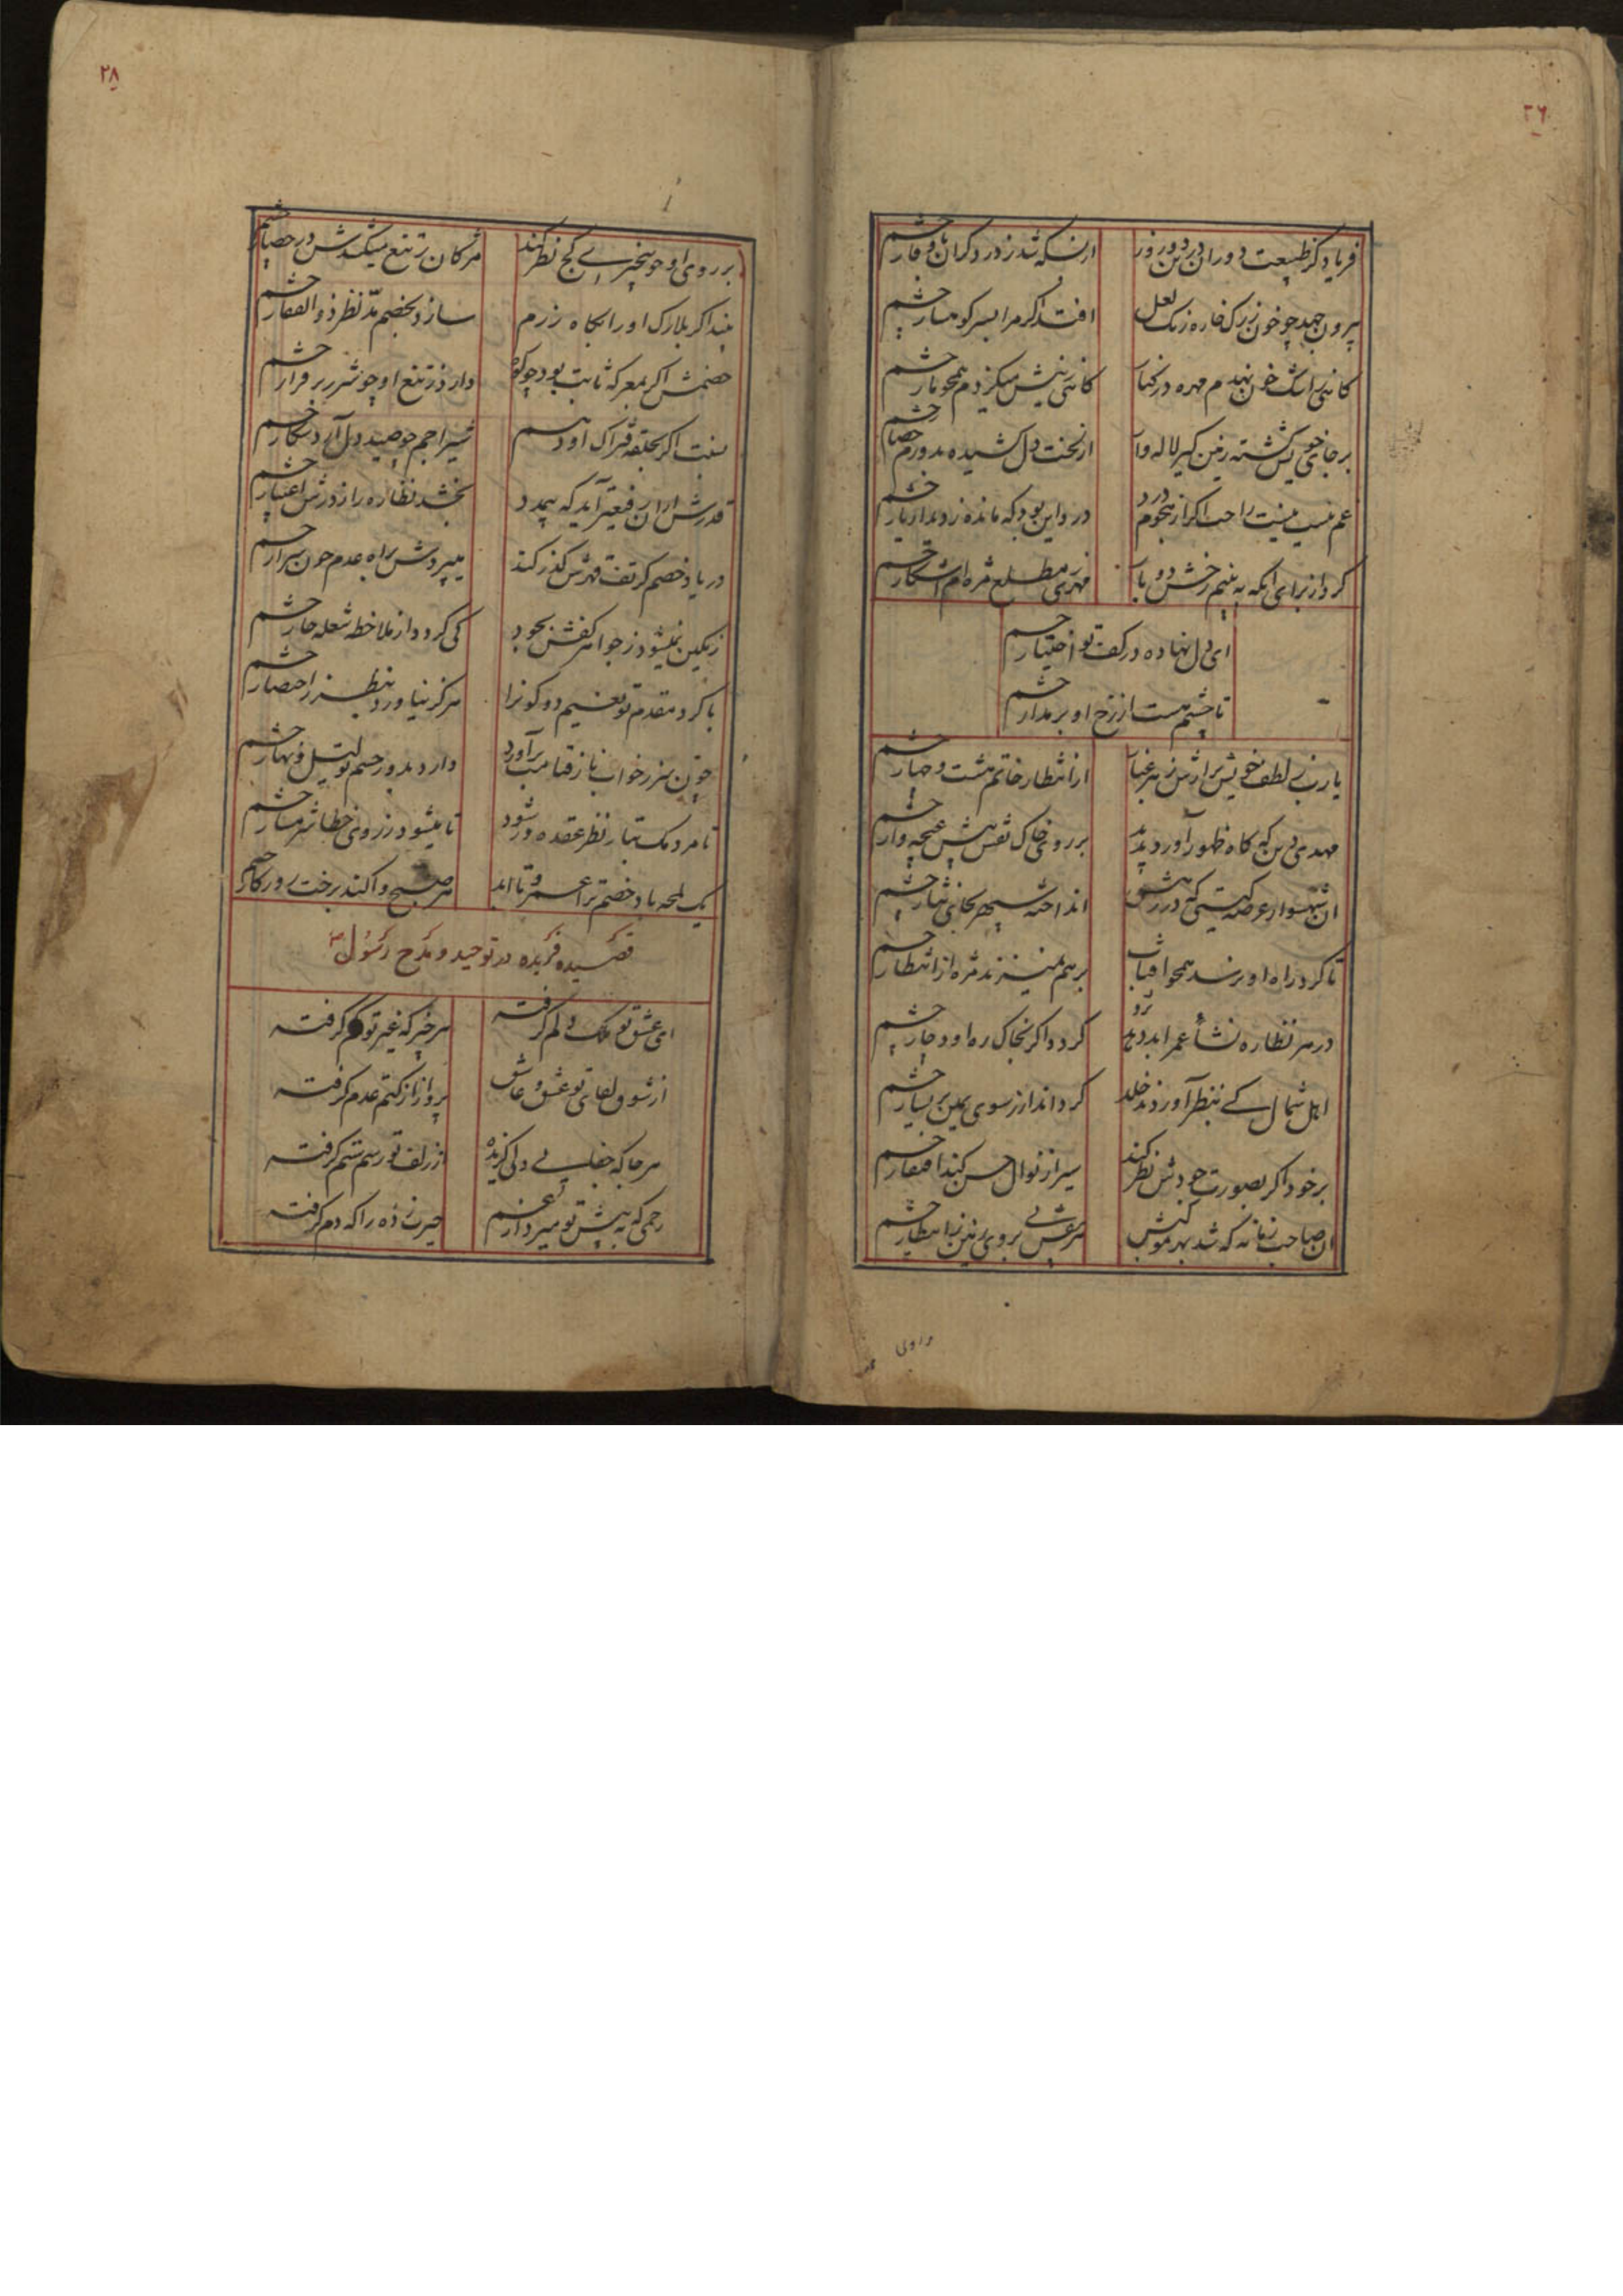 ۲۶
فریاد کز طبیعت دوران
از بسکه شد ز درد گران با وقار چشم
بیرون جهد چو خون ز رگ خاره رنگ لعل
افتد اگر مرا بسر کوهسار چشم
کاهی ز نیش میگزدم همچو مار چشم
بر جای خویش گشته زمین گیر لاله وار
از لخت دل کشیده بدورم حصار چشم
غم نیست نیست راحت اگر از هجوم درد
درد این بود که مانده ز دیدار یار چشم
کرد از برای آنکه به بینم رخش دو بار
مطلع مژه ام آشکار چشم
ای دل نهاده در کف تو اختیار چشم
تا چشم هست از رخ او بر مدار چشم
یا رب ز لطف خویش
از انتظار خاتم هشت و چهار چشم
مهدی دین که گاه ظهور آورد پدید
بر روی خاک نقش پیش غنچه وار چشم
آن شهسوار عرصه هستی که در رهش
انداخته سپهر بجای نثار چشم
تا گرد راه او برسد همچو آفتاب
بر هم نمیزند مژه از انتظار چشم
در هر نظاره نشأ عمر ابد دهد
گردد اگر بخاک ره او دچار چشم
اهل شمال کی بنظر آورند خلد
گر داند از سوی یمین بر یسار چشم
بر خود اگر بصورت جودش نظر کند
سیر از نوال حسن کند افتقار چشم
آن صاحب زمانه که شد بهر مقدمش
هر نقش پی بروی زمین ز انتظار چشم
بر روی
۲۸
بر روی او چو بیخبری کج نظر کند
مژگان ز تیغ میکشدش در حصار چشم
بیند اگر بلارک او را بگاه رزم
سازد بخصم مد نظر ذوالفقار چشم
خصمش اگر بمعرکه ثابت بود چو کوه
دارد ز تیغ او چو شرر بر فرار چشم
بست اگر بحلقه فتراک او دهم
شیر اجم چو صید دل آرد شکار چشم
قدرش از آن رفیعتر آید که بیمدد
بخشد نظاره را ز درش اعتبار چشم
در یاد خصم گر تف قهرش گذر کند
میپرودش براه عدم چون شرار چشم
رنگین نمیشود ز جواهر کفش بجود
کی گردد از ملاحظه شعله حار چشم
با گرد مقدم تو نعیم دو کون را
هرگز نیاورد بنظر ز اختصار چشم
چون سر ز خواب ناز قیامت برآورد
دارد بدور چشم تو لیل و نهار چشم
تا مردمک بتار نظر عقده در شود
تا میشود ز روی خطا شرمسار چشم
یک لمحه باد خصم ترا عمر و تا ابد
هر صبح وا کند برخت روزگار چشم
قصیده فریده در توحید و مدح رسول ص
ای عشق تو ملک دلم گرفته
هر چیز که غیر تو کم گرفته
از شوق لقای تو عشق و عاشق
پرواز از کتم عدم گرفته
هر جا که جفا پی دلی گزیده
از زلف تو رسم ستم گرفته
رحمی که به پیش تو میرد از غم
حیرت زده را که دم گرفته